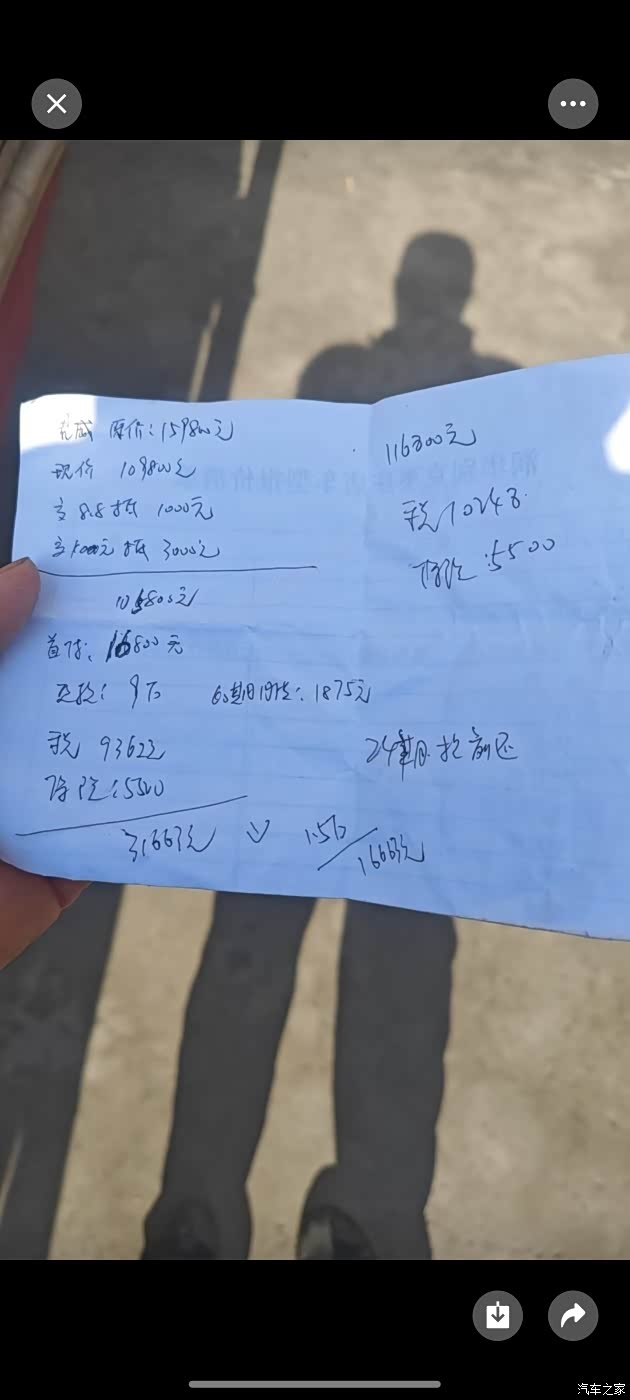 凯威 原价:159800元
现价 109800元
交88抵 1000元
交1000元抵 3000元
105800元
首付:16800元
贷款:9万 60期月供:1875元
税 9362元
保险:5500
31663元
1.5万
16663元
116800元
税10248
保险:5500
24期 提前还
汽车之家